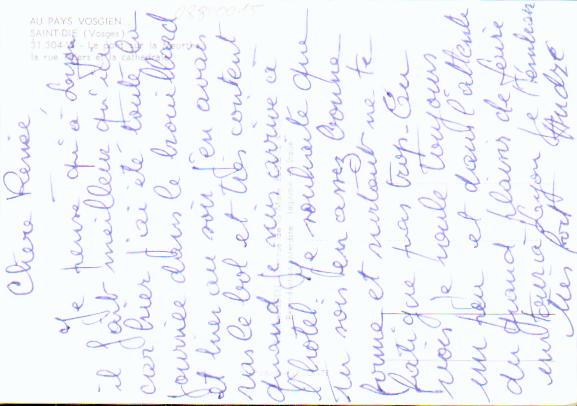 AU PAYS VOSGIEN
SAINT-DIÉ (Vosges)
31.304 - Le pont sur la Meurthe
la rue Thiers et la cathédrale
Chère Renée
Je pense qu'à
il fait meilleur qu'ici
car hier j'ai été toute la
journée dans le brouillard
et hier au soir j'en avais
ras le bol et très content
quand je suis arrivé à
l'hôtel. Je souhaite que
tu sois en assez bonne
forme et surtout ne te
fatigue pas trop. Tu
vois je roule toujours
un peu et dans l'attente
du grand plaisir de faire
un tour à Loyon je
André